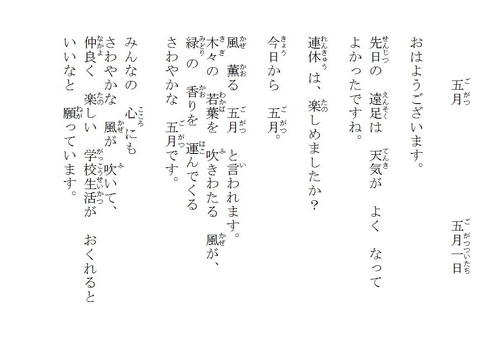 五月　五月一日
おはようございます。
先日の　遠足は　天気が　よく　なって
よかったですね。
連休は、楽しめましたか？
今日から　五月。
風　薫る　五月　と言われます。
木々の　若葉を　吹きわたる　風が、
緑の　香りを　運んでくる
さわやかな　五月です。
みんなの　心にも
さわやかな　風が　吹いて、
仲良く　楽しい　学校生活が　おくれると
いいなと　願っています。